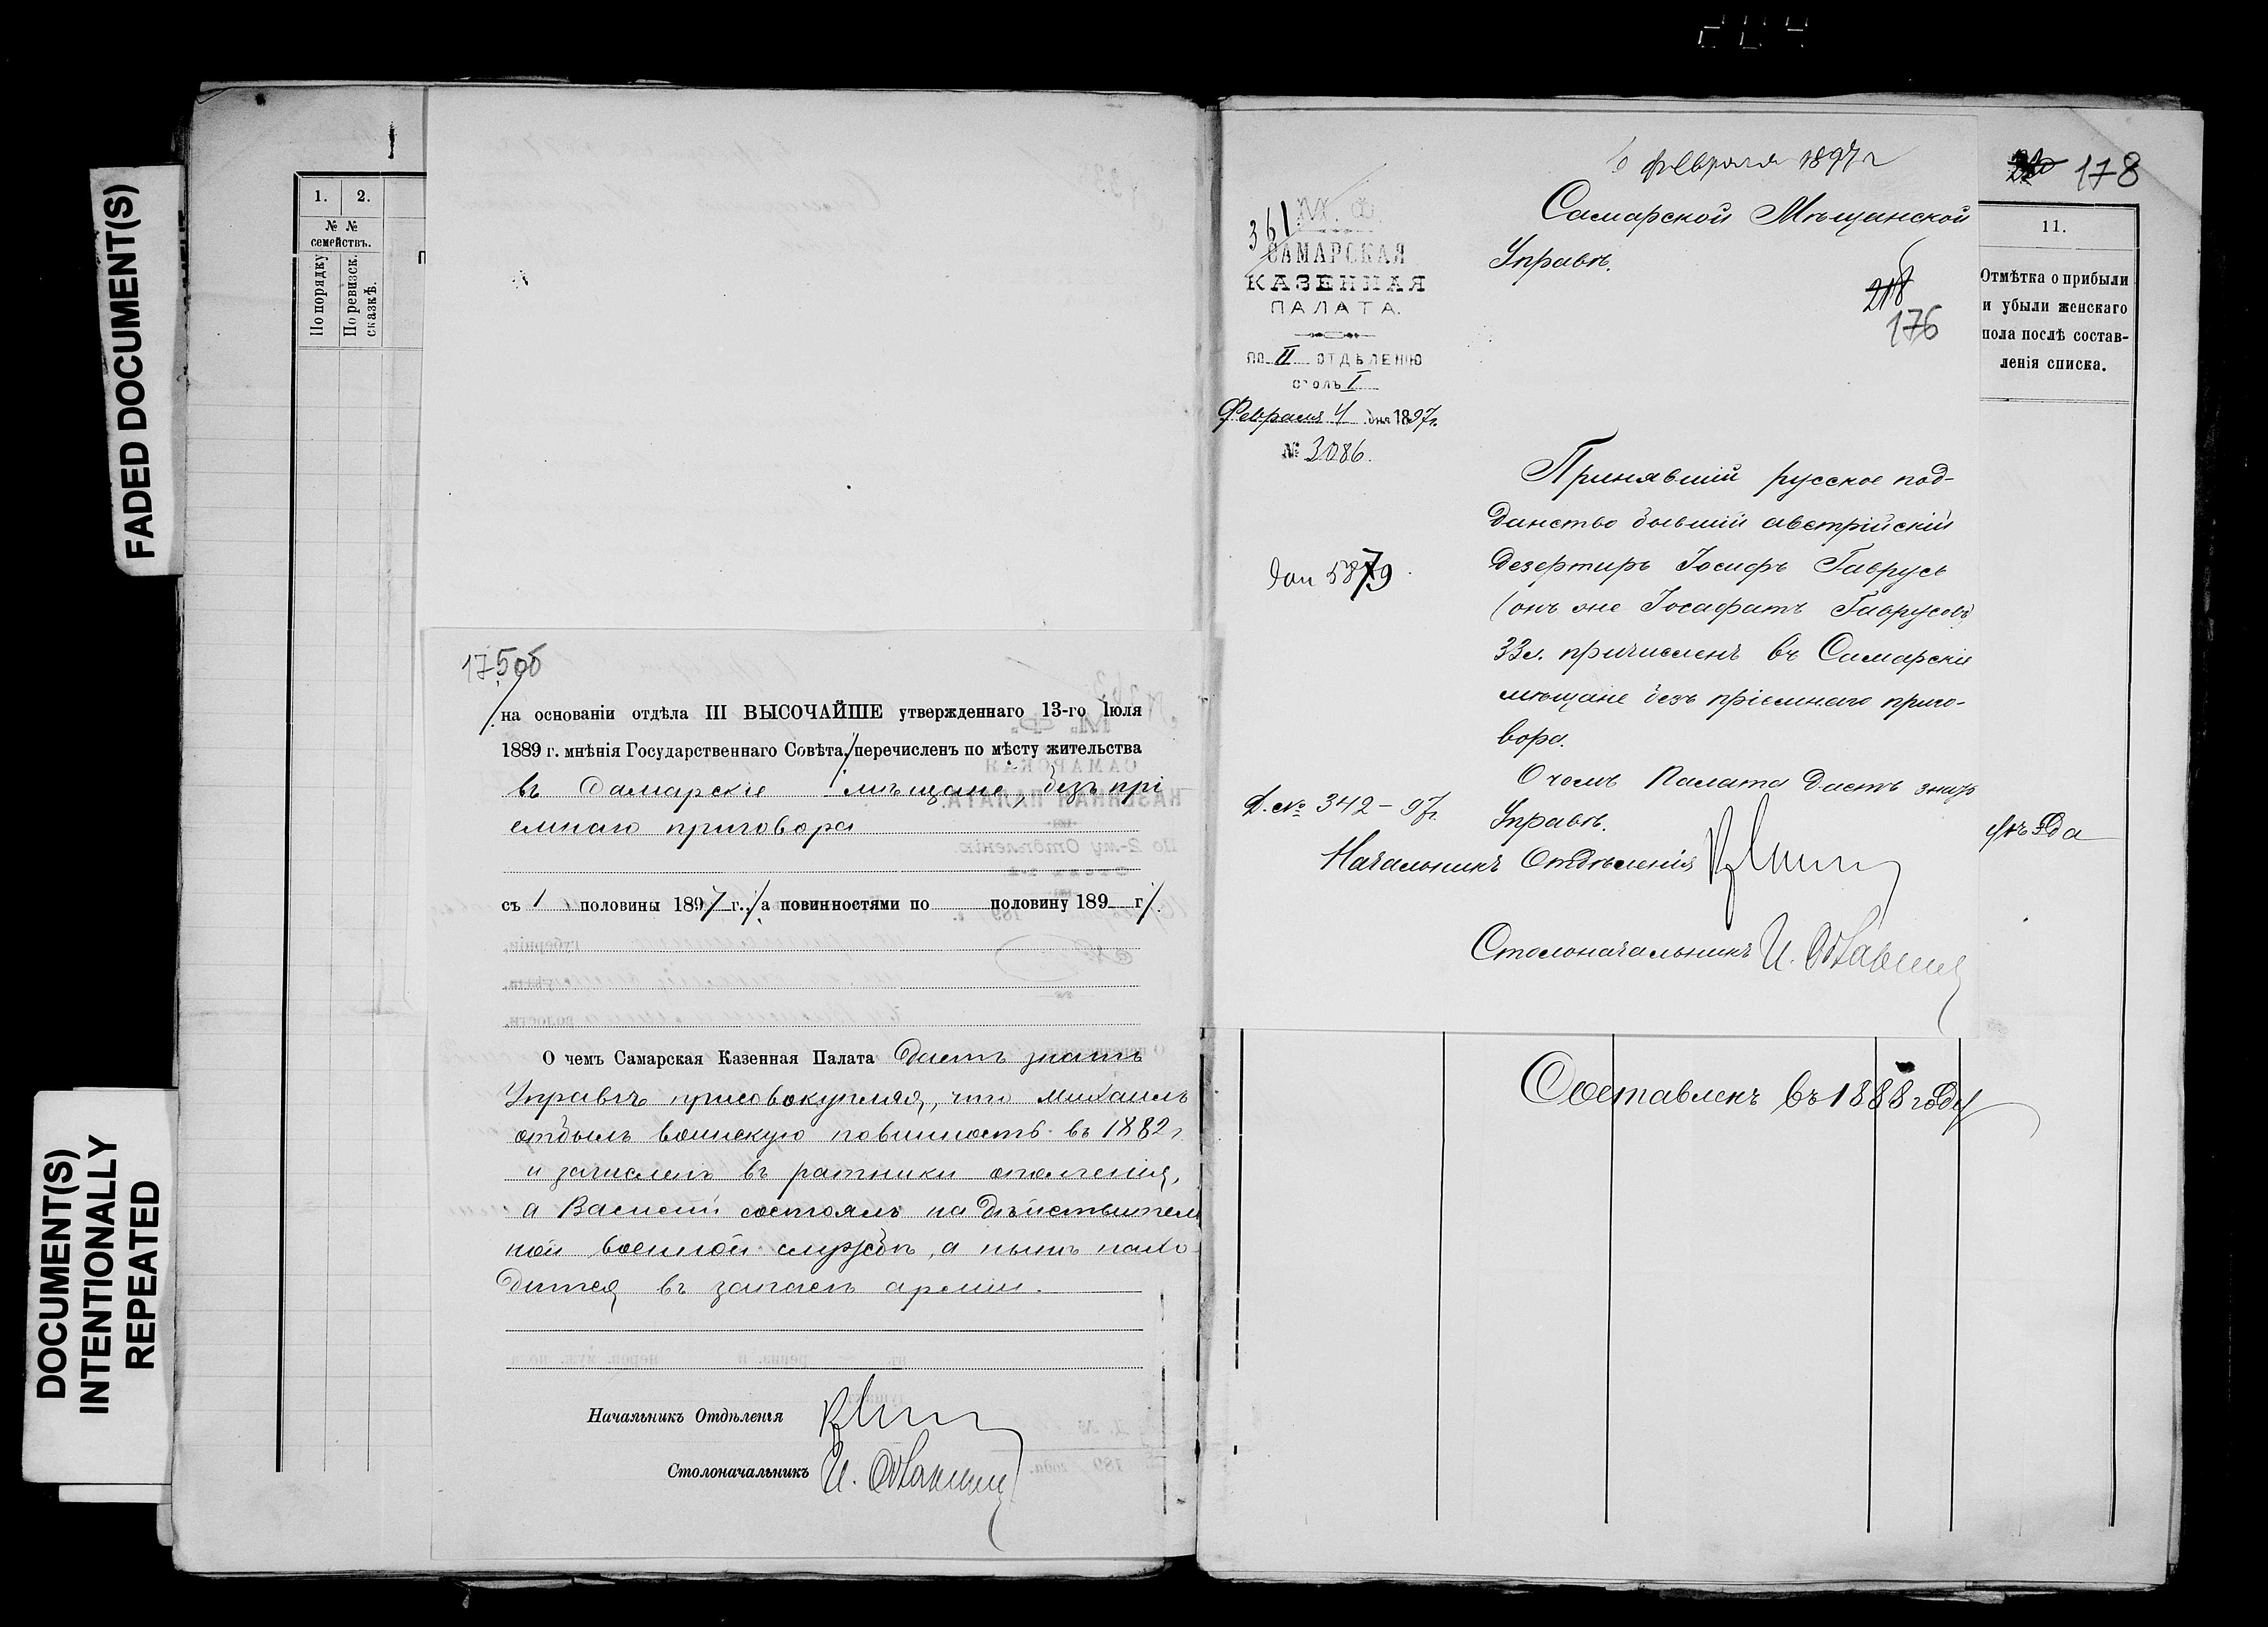 FADED DOCUMENT(S)
DOCUMENT(S)
INTENTIONALLY
REPEATED
1. 2.
№ №
семействъ.
По порядку
По ревизск.
сказкѣ.
175об
на основаніи отдѣла III ВЫСОЧАЙШЕ утвержденнаго 13-го Іюля
1889 г. мнѣнія Государственнаго Совѣта, перечисленъ по мѣсту жительства
въ Самарскіе мѣщане, безъ прі
емнаго приговора
съ 1 половины 1897 г., а повинностями по половину 189 г.
О чемъ Самарская Казенная Палата даетъ знать
Управѣ присовокупляя, что Михаилъ
отбылъ воинскую повинность въ 1882 г
и зачисленъ въ ратники ополченія,
а Василій состоялъ на дѣйствитель
ной военной службѣ, а нынѣ нахо-
дится въ запасѣ арміи.
Начальникъ Отдѣленія
Столоначальникъ И.
6 февраля 1897 г
178
361
М. Ф.
САМАРСКАЯ
КАЗЕННАЯ
ПАЛАТА.
по II ОТДѢЛЕНІЮ
столъ I
Февраля 4 дня 1897 г.
№ 3086.
Самарской Мѣщанской
Управѣ.
218
176
Принявшій русское под-
данство бывшій австрійскій
дезертиръ Іосифъ Гаврусь
(онъ же Іосафатъ Гаврусовъ)
33 л. причисленъ въ Самарскіе
мѣщане безъ пріемнаго приго-
вора.
О чемъ Палата даетъ знать
Управѣ.
Д. № 342 – 97 г.
Начальникъ Отдѣленія
Столоначальникъ И.
11.
Отмѣтка о прибыли
и убыли женскаго
пола послѣ состав-
ленія списка.
Составленъ въ 1888 году